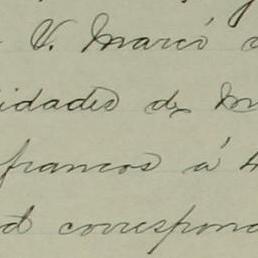 V. Marcó
idades de M
francos á 4
d correspond